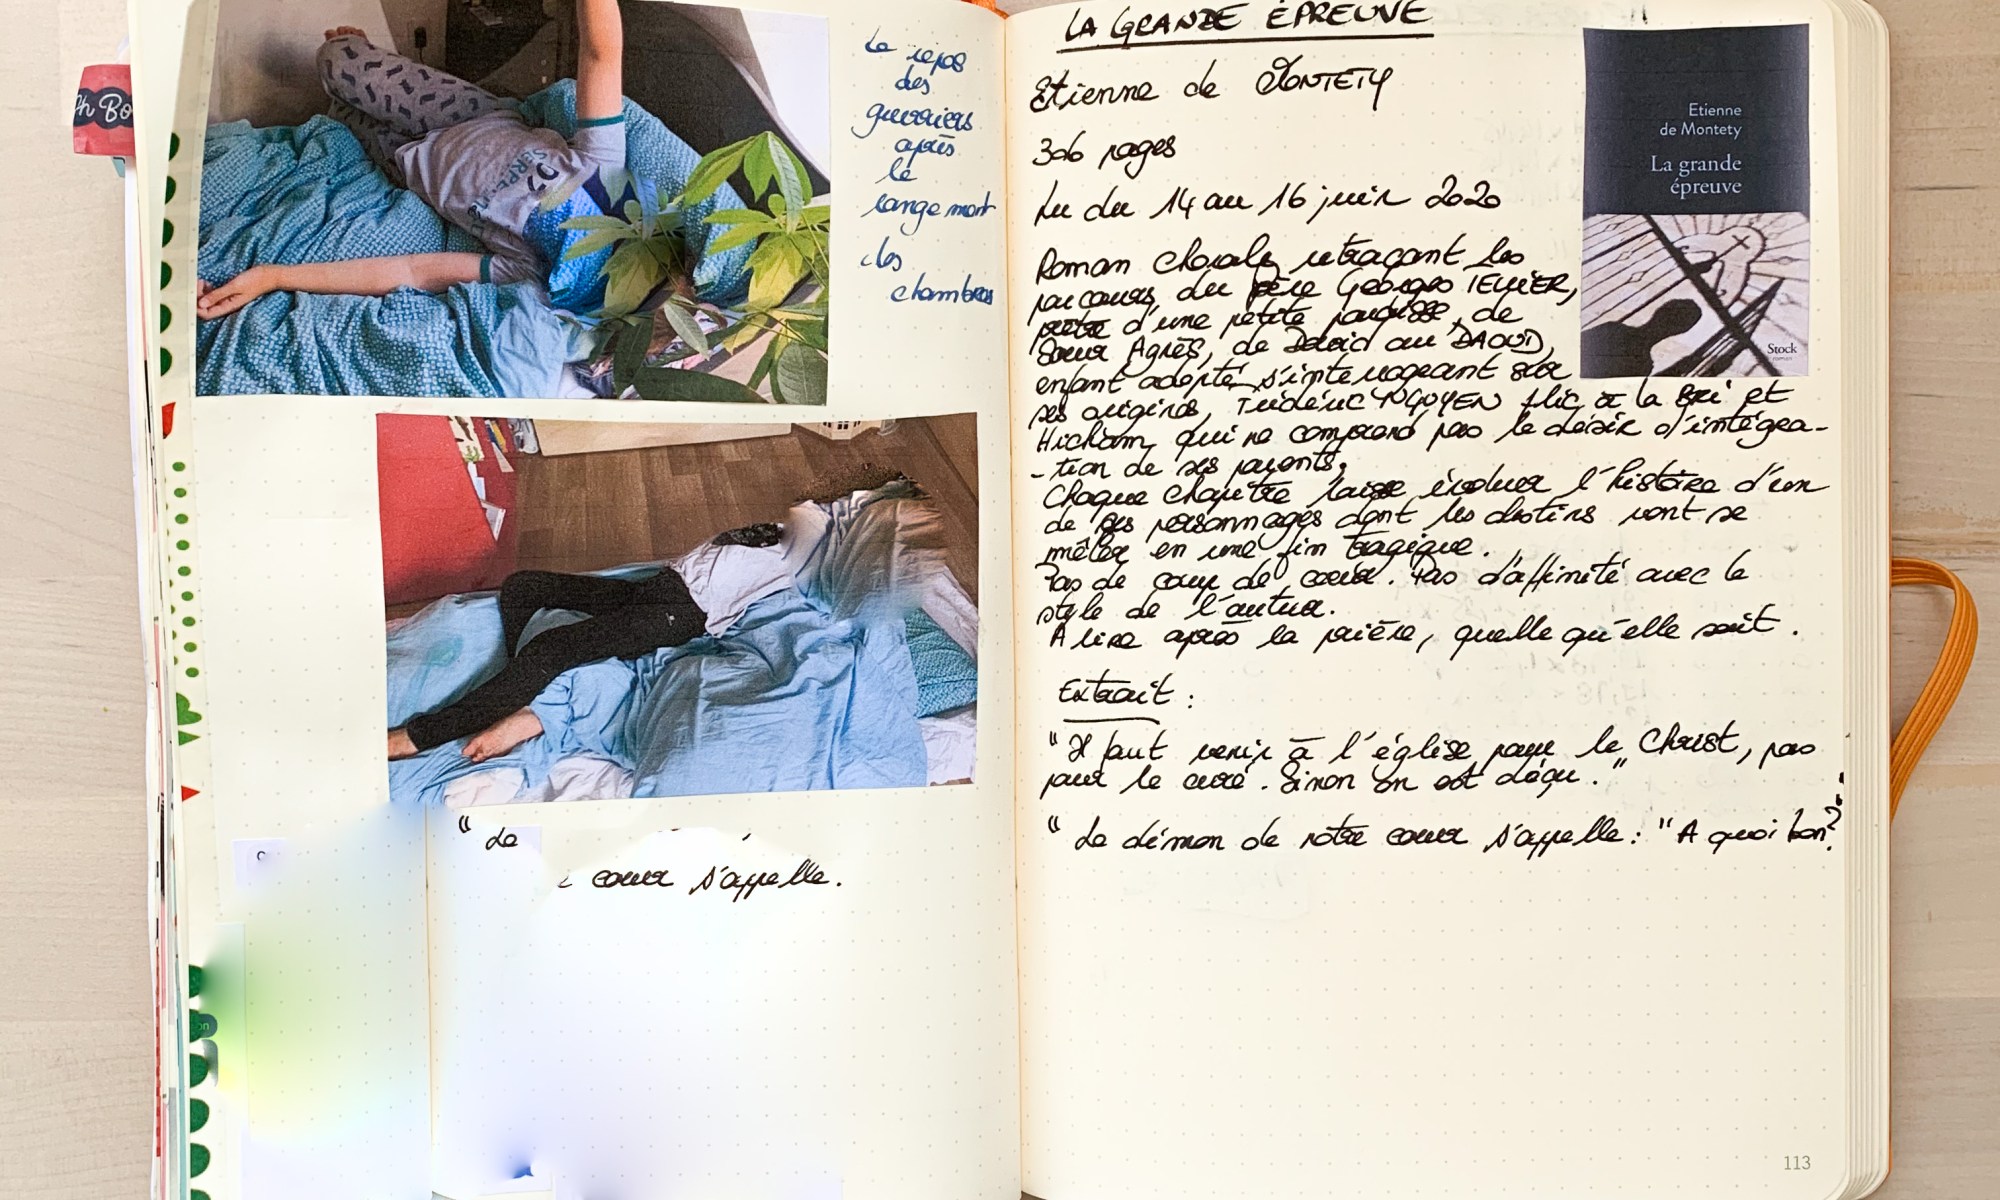 Oh Bo
02
SERPE
Le repos
des
guerriers
après
le
rangement
des
chambres
" Le
cœur s'appelle.
LA GRANDE ÉPREUVE
Etienne de MONTETY
306 pages
Lu du 14 au 16 juin 2020
Roman chorale retraçant les
parcours du père Georges TELLIER,
prêtre d'une petite paroisse, de
Sœur Agnès, de David ou DAOUD,
enfant adopté s'interrogeant sur
ses origines, Frédéric NGUYEN flic à la BRI et
Hicham qui ne comprend pas le désir d'intégra-
-tion de ses parents.
Chaque chapitre laisse évoluer l'histoire d'un
de ces personnages dont les destins vont se
mêler en une fin tragique.
Pas de coup de cœur. Pas d'affinité avec le
style de l'auteur.
A lire après la prière, quelle qu'elle soit.
Extrait :
"Il faut venir à l'église pour le Christ, pas
pour le curé. Sinon on est déçu."
" Le démon de notre cœur s'appelle : "A quoi bon?
Etienne
de Montety
La grande
épreuve
Stock
113